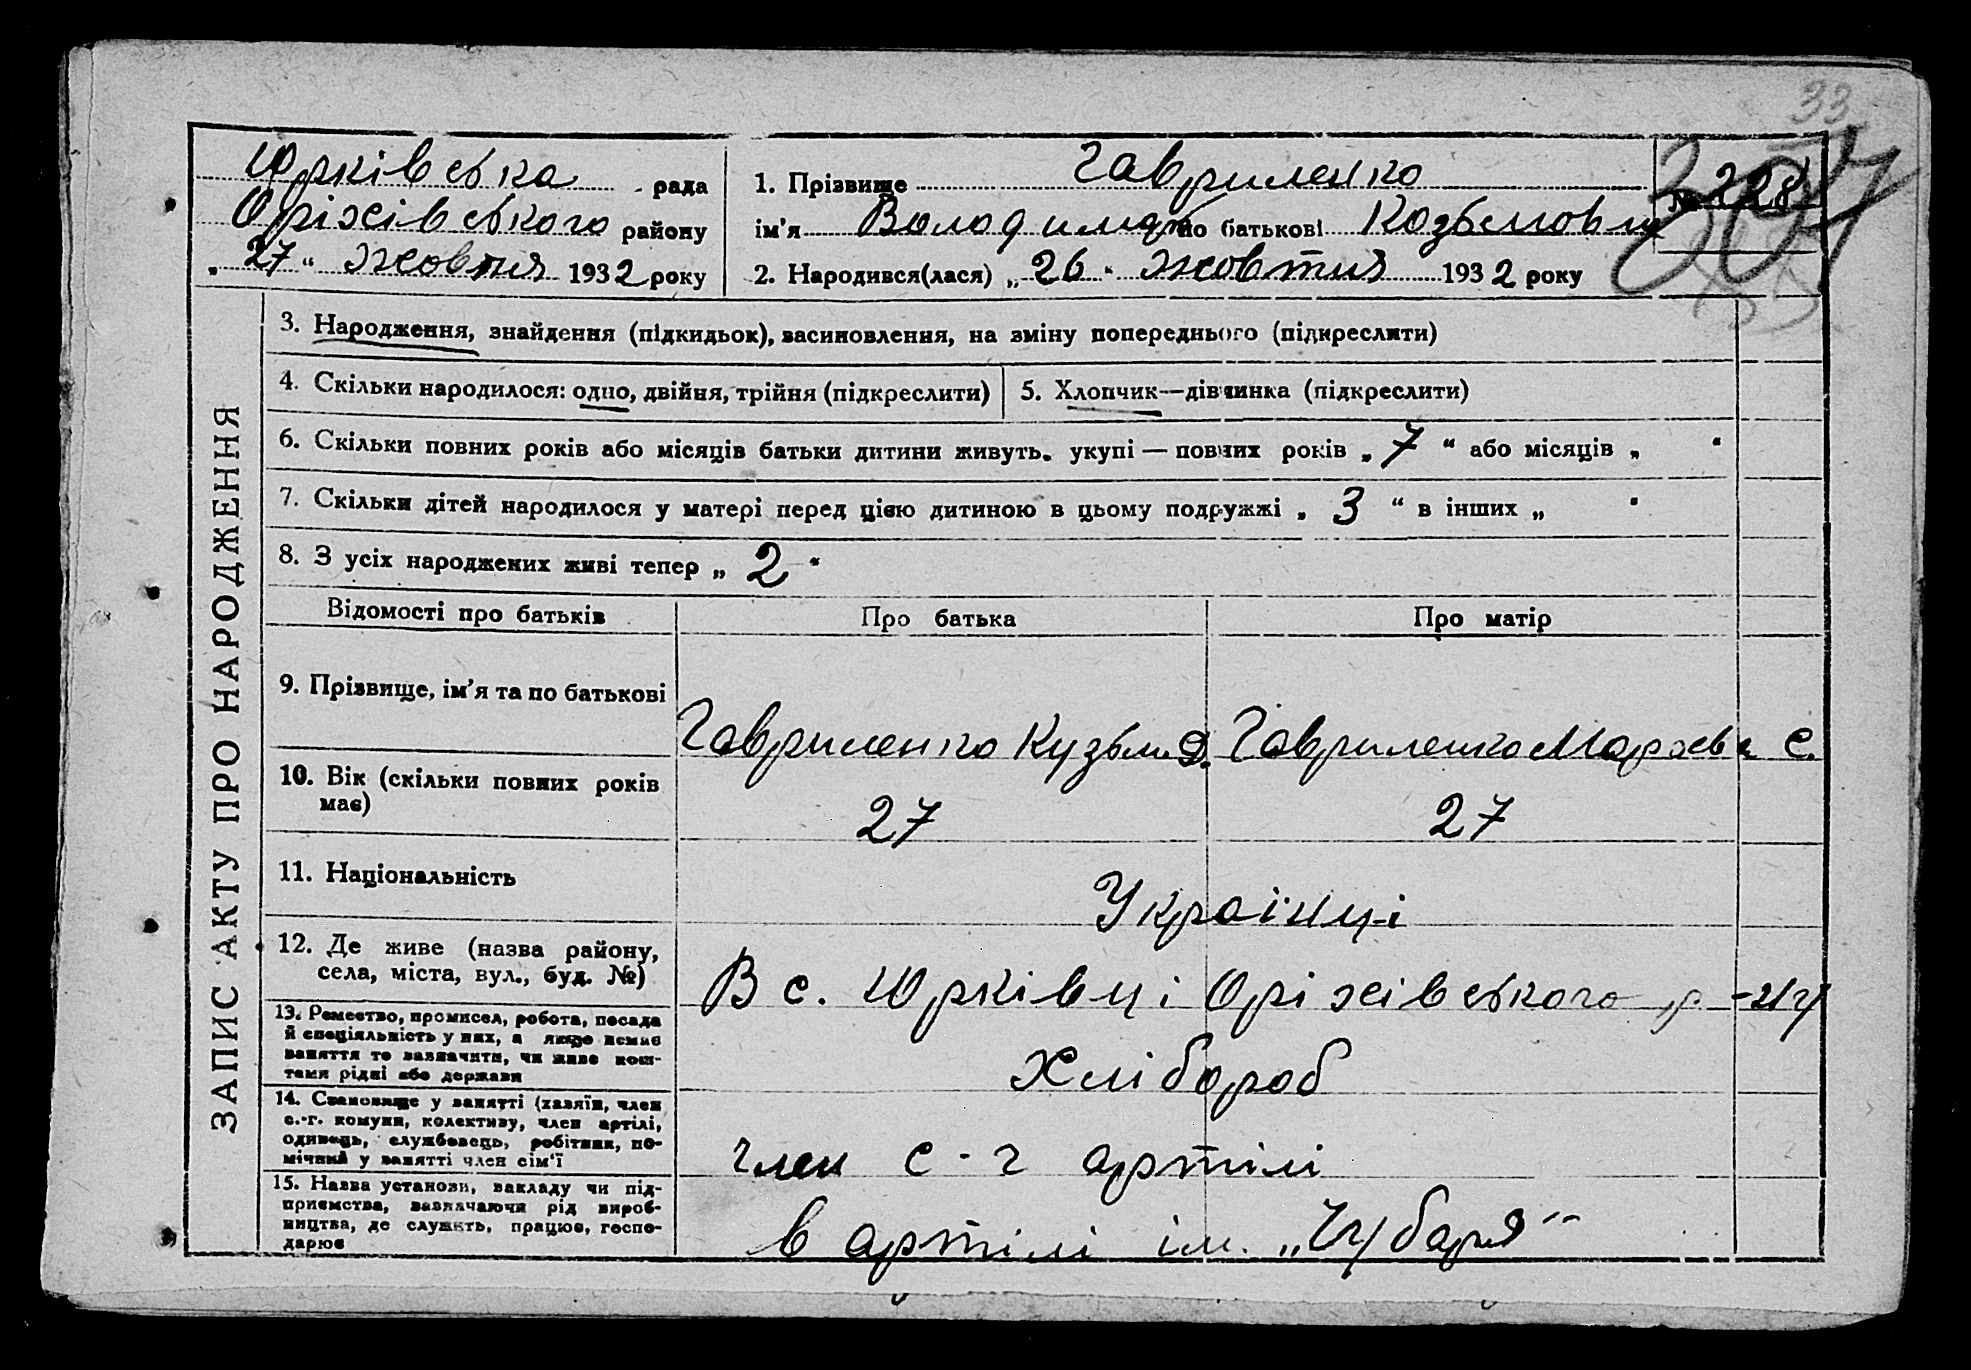 33
Юрківська рада
Оріхівського району
„ 27 “ жовтня 1932 року
1. Прізвище Гавриленко
№ 228
ім'я Володимир по батькові Козьмович
2. Народився(лася) „ 26 “ жовтня 1932 року
ЗАПИС АКТУ ПРО НАРОДЖЕННЯ
3. Народження, знайдення (підкидьок), васиновлення, на зміну попереднього (підкреслити)
4. Скільки народилося: одно, двійня, трійня (підкреслити)
5. Хлопчик—дівчинка (підкреслити)
6. Скільки повних років або місяців батьки дитини живуть. укупі — повних років „ 7 “ або місяців „ “
7. Скільки дітей народилося у матері перед цією дитиною в цьому подружжі „ 3 “ в інших „ “
8. З усіх народжених живі тепер „ 2 “
Відомості про батьків
Про батька
Про матір
9. Прізвище, ім'я та по батькові
Гавриленко Кузьм. Д.
Гавриленко С.
10. Вік (скільки повних років має)
27
27
11. Національність
Українці
12. Де живе (назва району,
села, міста, вул., буд. №)
В с. Юрківці Оріхівського р-ну
13. Ремество, промисел, робота, посада
й спеціяльність у них, а якщо немає
заняття то зазначити, чи живе кош-
тами рідні або держави
Хлібороб
14. Становище у занятті (хазяїн, член
с.-г. комуни, колективу, член артілі,
одинець, службовець, робітник, по-
мічний у занятті член сім'ї
член с-г артілі
15. Назва установи, закладу чи під-
приємства, зазначаючи рід вироб-
ництва, де служить, працює, госпо-
дарює
в артілі ім. „Чубаря“